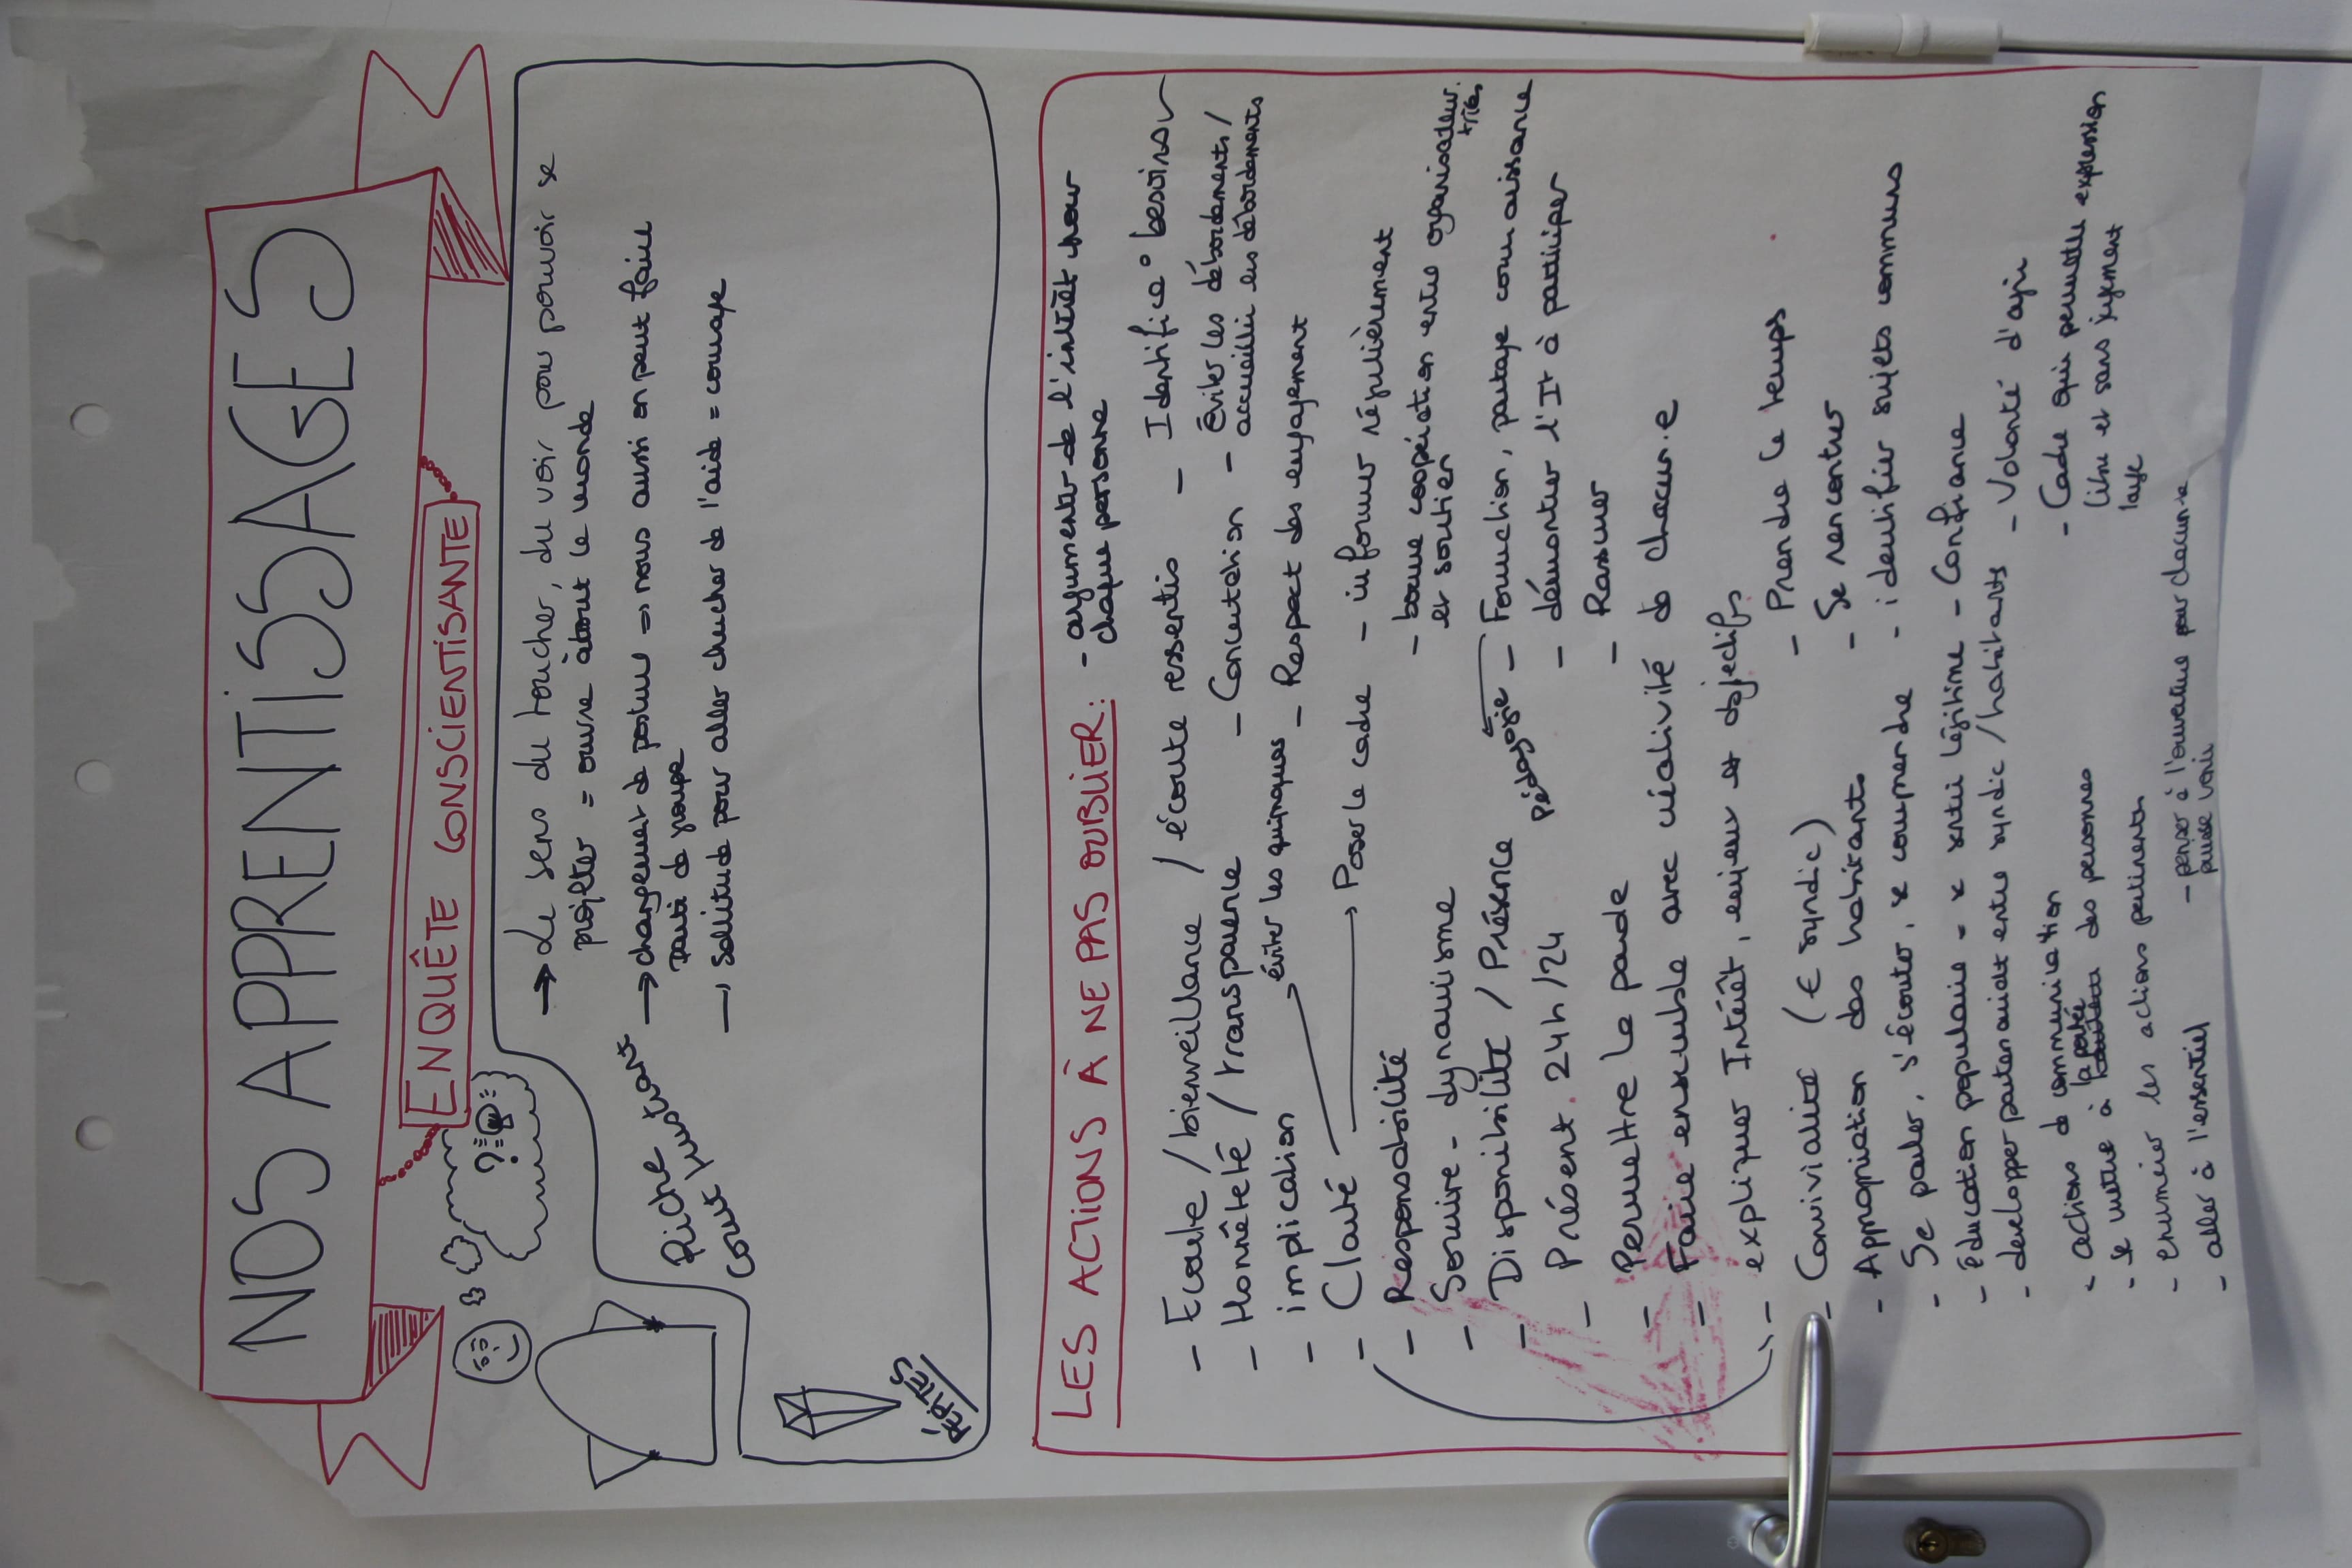 NOS APPRENTISSAGES
ENQUÊTE CONSCIENTISANTE
?! =
→ Le sens du toucher, du voir pour pouvoir se
projeter = ouvre à tout le monde
→ changement de posture => nous aussi on peut faire
partie de groupe
→ solitude pour aller chercher de l'aide = courage
Riche
court frustrant
PÉPITES
LES ACTIONS À NE PAS OUBLIER:
- argumenter de l'intérêt pour
chaque personne
- Ecoute / bienveillance / écoute ressentis
- Identific° besoins
- Honnêteté / transparence
- Concertation
- éviter les débordements /
accueillir les débordements
- implication
éviter les quiproques
- Respect des engagement
- Clarté → Poser le cadre
- informer régulièrement
- Responsabilité
- bonne coopération entre organisateur.
trices
et soutien
- Sourire - dynamisme
- Disponibilité / Présence
pédagogie
- Formation, partage connaissance
- Présent. 24h/24
- démontrer l'It à participer
- Permettre la parole
- Rassurer
- Faire ensemble avec créativité de chacun.e
- expliquer Intérêt, enjeux et objectifs
- Convivialité (€ syndic)
- Prendre le temps
- Appropriation des habitants
- Se rencontrer
- Se parler, s'écouter, se comprendre
- identifier sujets communs
- éducation populaire = se sentir légitime - Confiance
- développer partenariat entre syndic / habitants
- Volonté d'agir
- actions de communication
- Cadre qui permette expression
libre et sans jugement
- se mettre à la portée des personnes
- énumérer les actions pertinentes
- aller à l'essentiel
- penser à l'ouverture pour chacun.e